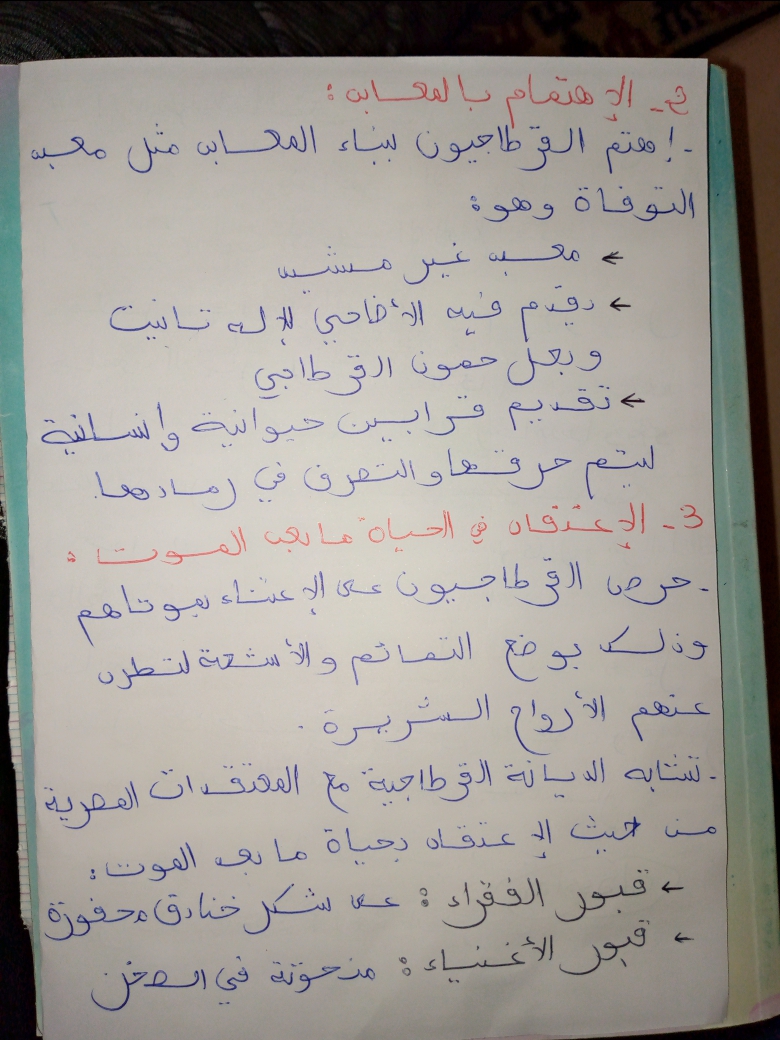 2- الإهتمام بالمعابد :
- إهتم القرطاجيون ببناء المعابد مثل معبد
التوفاة وهو :
← معبد غير مشيد
← يقدم فيه الأضاحي للإله تانيت
وبعل حمون القرطاجي
← تقديم قرابين حيوانية وإنسانية
ليتم حرقها والتصرف في رمادها.
3- الإعتقاد في الحياة ما بعد الموت :
- حرص القرطاجيون على الإعتناء بموتاهم
وذلك بوضع التمائم والأشعة لتطرد
عنهم الأرواح الشريرة .
- تتشابه الديانة القرطاجية مع المعتقدات المصرية
من حيث الإعتقاد بحياة ما بعد الموت :
← قبور الفقراء : على شكل خنادق محفورة
← قبور الأغنياء : منحوتة في الصخر